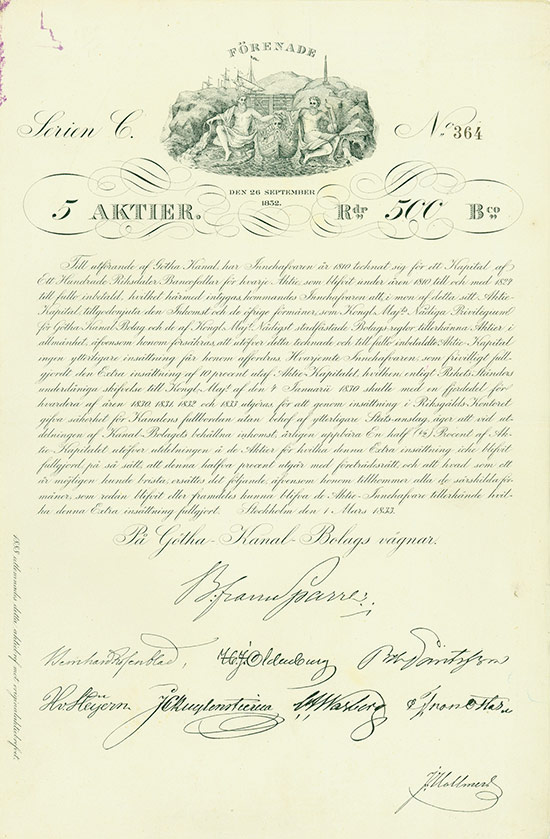 FÖRENADE
Serien C.
No 364
DEN 26 SEPTEMBER
1832.
5 AKTIER.
Rdr 500 Bco
Till utförande af Götha Kanal, har Innehafvaren år 1810 technat sig för ett Kapital af
Ett Hundrade Riksdaler Bancosedlar för hvarje Aktie, som blifvit under åren 1810 till och med 1824
till fullo inbetald, hvilket härmed intygas, kommandes Innehafvaren att, i mon af detta sitt Aktie-
Kapital, tillgodonjuta den Inkomst och de öfrige förmåner, som Kongl. Majts Nådiga Privilegium
för Götha Kanal Bolag och de af Kongl. Majt Nådigst stadfästade Bolags reglor tillerkänna Aktier i
allmänhet, äfvensom försäkras, att utöfver detta technade och till fullo inbetaldte Aktie-Kapital
ingen ytterligare insättning får honom affordras. Hvarjemte Innehafvaren, som frivilligt full-
gjordt den Extra insättning af 10 procent utaf Aktie-Kapitalet, hvilken, enligt Rikets Ständers
underdåniga skrifvelse till Kongl. Majt af den 4 Januarii 1830 skulle med en fjerdedel för
hvardera af åren 1830, 1831, 1832 och 1833 utgöras, för att genom insättning i Riksgälds Kontoret
gifva säkerhet för Kanalens fullbordan utan behof af ytterligare Stats-anslag, äger att vid ut-
delningen af Kanal-Bolagets behållna inkomst, årligen uppbära En half (½) Procent af Ak-
tie-Kapitalet utöfver utdelningen å de Aktier för hvilka denna Extra insättning icke blifvit
fullgjord, på så sätt, att denna halfva procent utgår med företrädesrätt, och att hvad som ett
år möjligen kunde brista, ersättes det följande, äfvensom honom tillkommer alla de särskilda för-
måner, som redan blifvit eller framdeles kunna blifva de Aktie-Innehafvare tillerkände, hvil-
ka denna Extra insättning fullgjort. Stockholm den 1 Mars 1833.
På Götha-Kanal-Bolags vägnar.
B. from Sparre
Bernhard Rosenblad, H. J. Oldenburg
H. v. Heijern J C Kuylenstierna Warberg
J. Hollmerd
1888 utlemnades detta aktiebref mot originalaktiebrefvet.